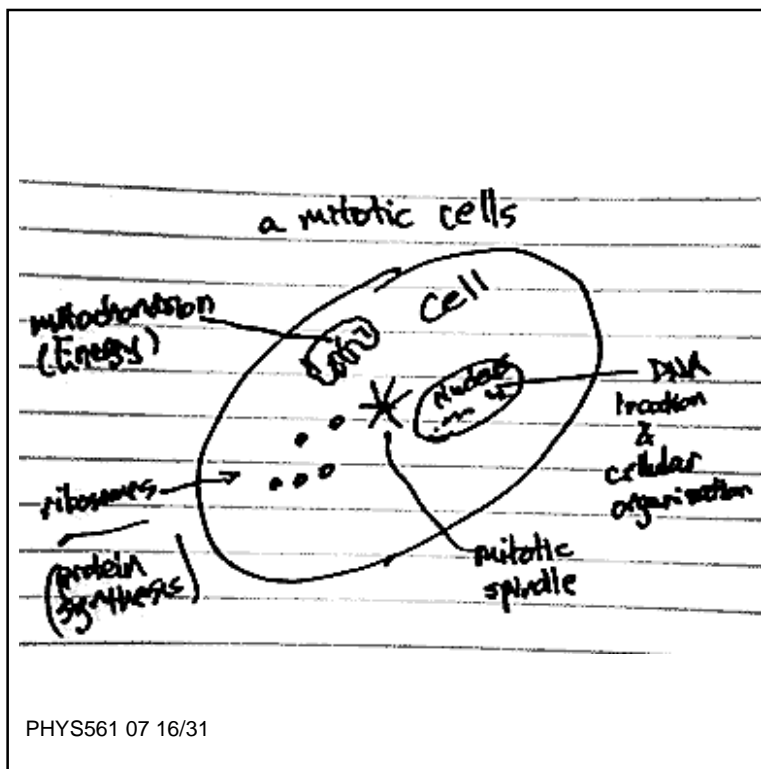 a mitotic cells
cell
mitochondrion
(Energy)
Nucleus
DNA
location
&
cellular
organization
ribosomes
(protein
synthesis)
mitotic
spindle
PHYS561 07 16/31